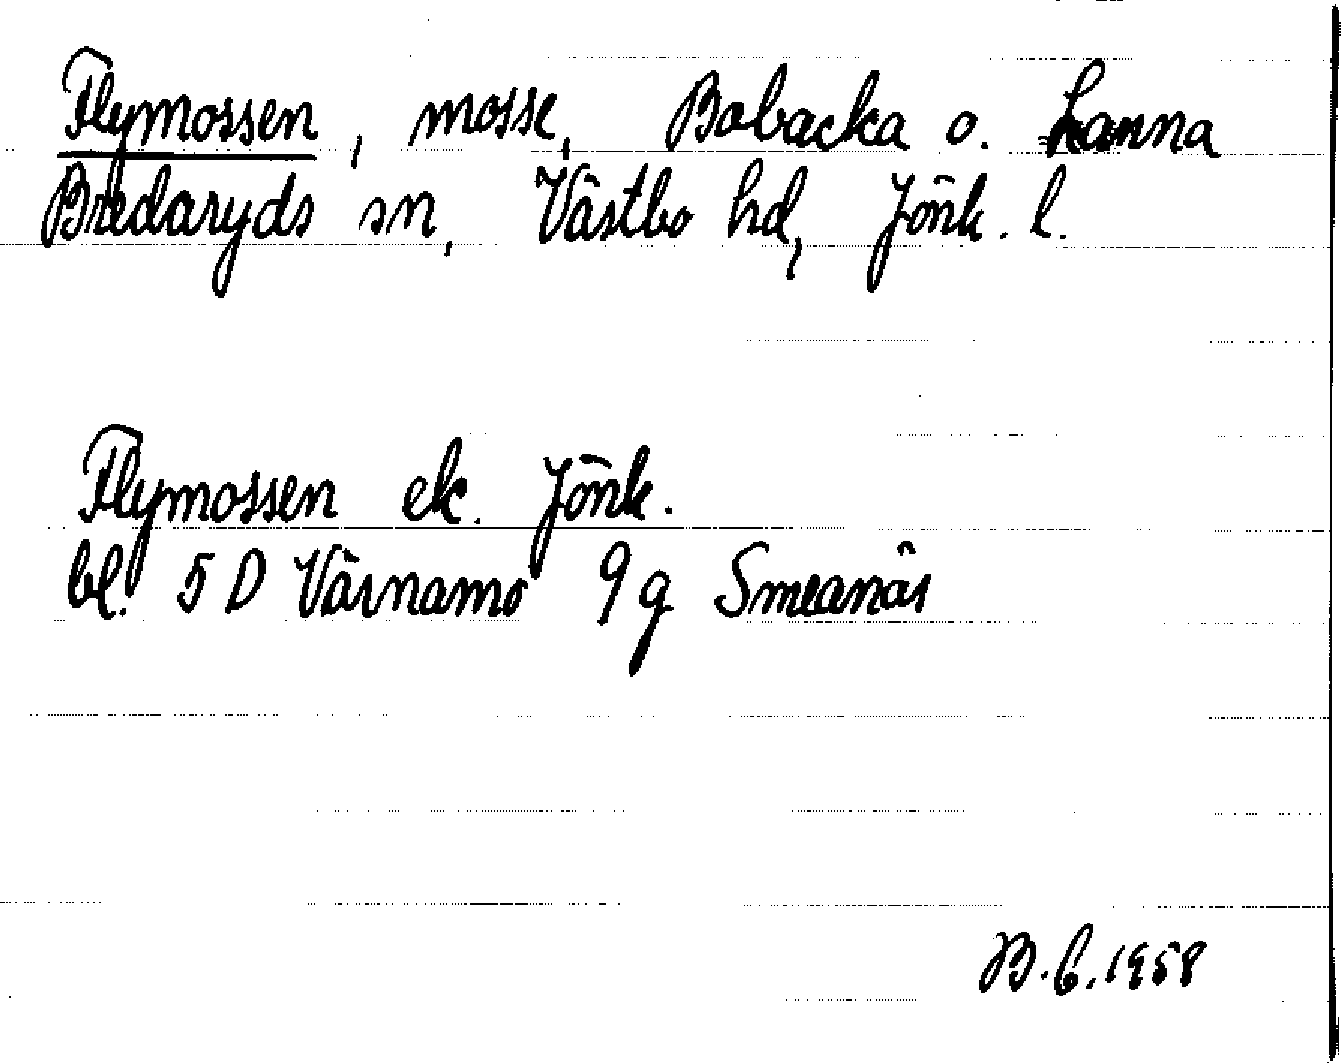 Flymossen, mosse, Bobacka o. Lanna
Bredaryds sn, Västbo hd, Jönk. l.
Flymossen ek. Jönk.
bl. 5 D Värnamo 9 g Smeanäs
B.C. 1958